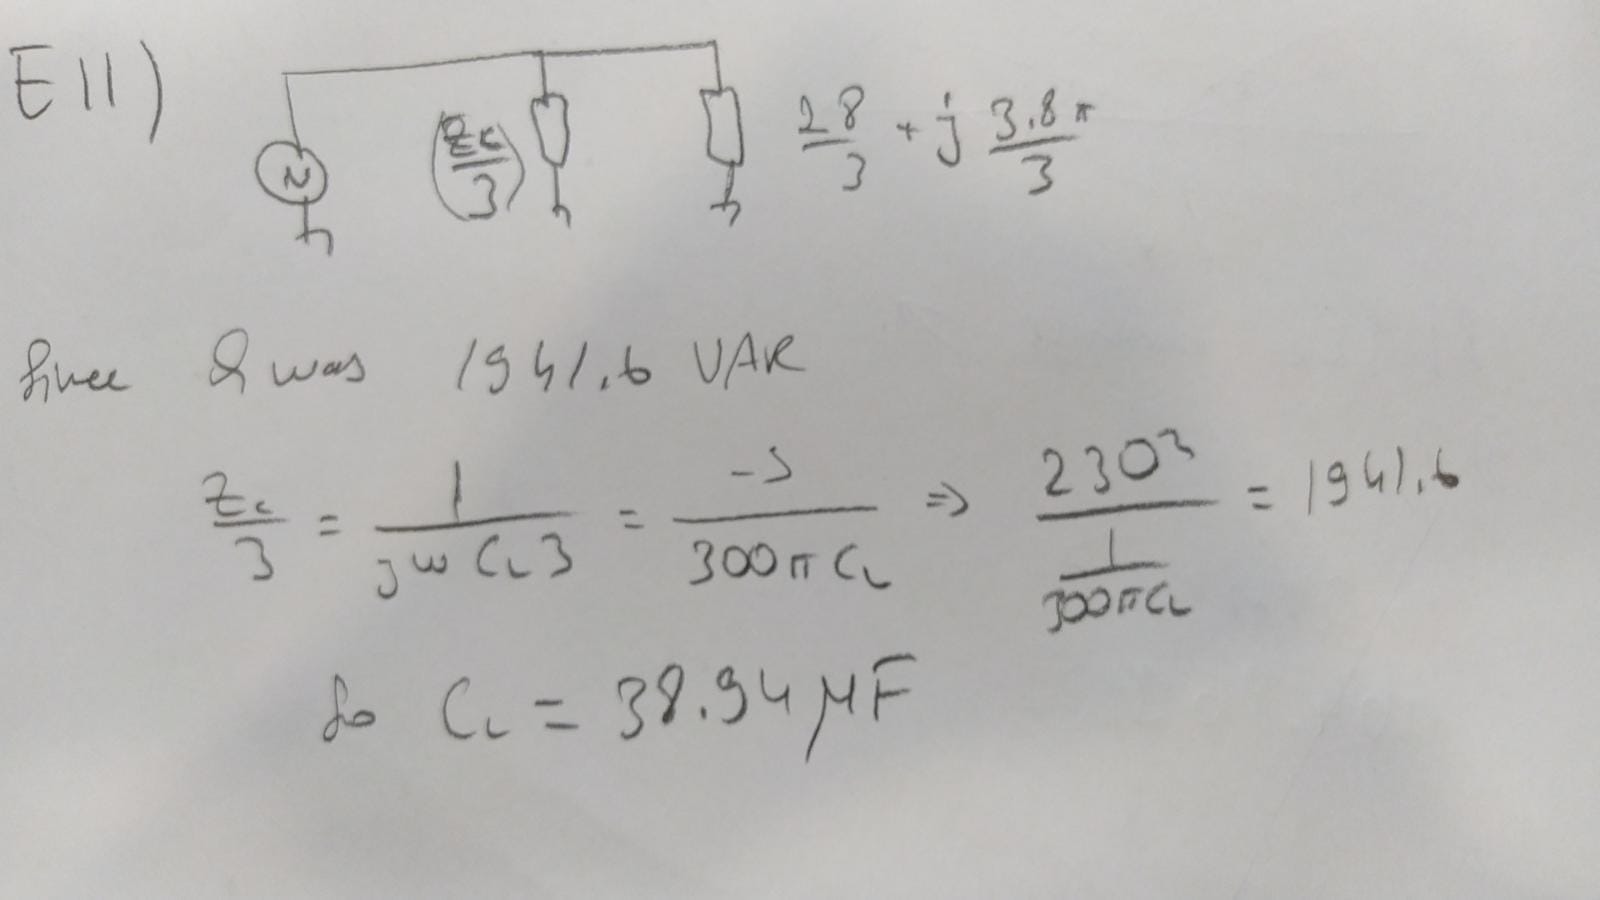 E11)
(Zc/3) 28/3 + j 3.8π/3
Since Q was 1941.6 VAR
Zc/3 = 1/(jωCL3) = -J/(300πCL) => 230²/(1/(300πCL)) = 1941.6
So CL = 38.94 μF